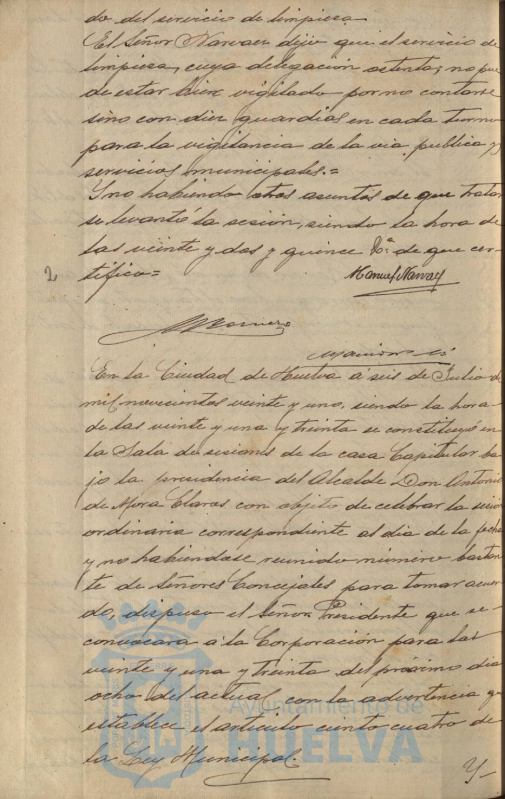 do del servicio de limpieza
El Señor Narvaez dijo que el servicio de
limpieza, cuya delegación ostenta, no pue
de estar bien vigilado por no contarse
sino con diez guardias en cada turno
para la vigilancia de la via publica y
servicios municipales.=
Y no habiendo otros asuntos de que tratar
se levantó la sesión, siendo la hora de
las veinte y dos y quince de que cer-
tifico=
Manuel Narvaez
2
En la Ciudad de Huelva á seis de Julio de
mil novecientos veinte y uno, siendo la hora
de las veinte y una y treinta se constituyó en
la Sala de sesiones de la casa Capitular ba
jo la presidencia del Alcalde Don Antonio
de Mora Claros con objeto de celebrar la sesión
ordinaria correspondiente al dia de la fecha
y no habiendose reunido número bastan
te de Señores Concejales para tomar acuer
do, dispuso el Señor Presidente que se
convocara á la Corporación para las
veinte y una y treinta del proximo dia
ocho del actual con la advertencia que
establece el articulo ciento cuatro de
la Ley Municipal.
Ayuntamiento de
HUELVA